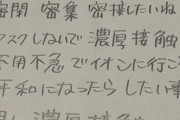 密閉 密集 密接したいね
マスクしないで 濃厚接触
不用不急でイオンに行こ
平和になったら したい事
濃厚接触